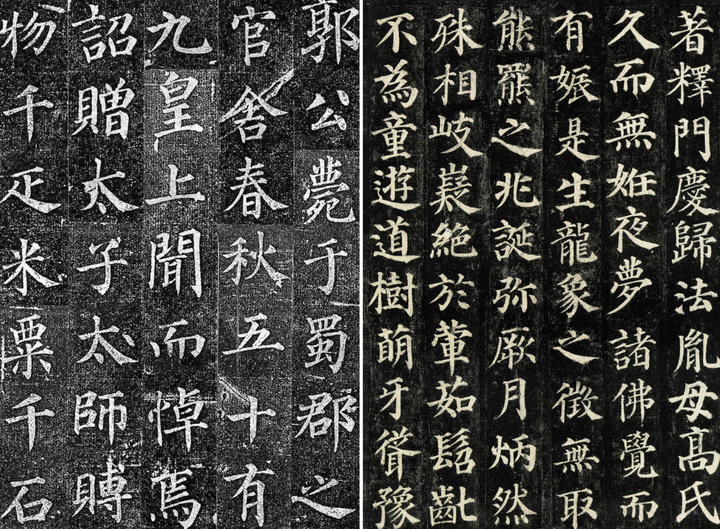 著釋門慶歸法胤母髙氏
久而無姙夜夢諸佛覺而
有娠是生龍象之徵無取
熊羆之兆誕弥厥月炳然
殊相岐嶷絕於葷茹髫齔
不為童遊道樹萌牙聳豫
郭公薨于蜀郡之
官舍春秋五十有
九皇上聞而悼焉
詔贈太子太師賻
物千疋米粟千石